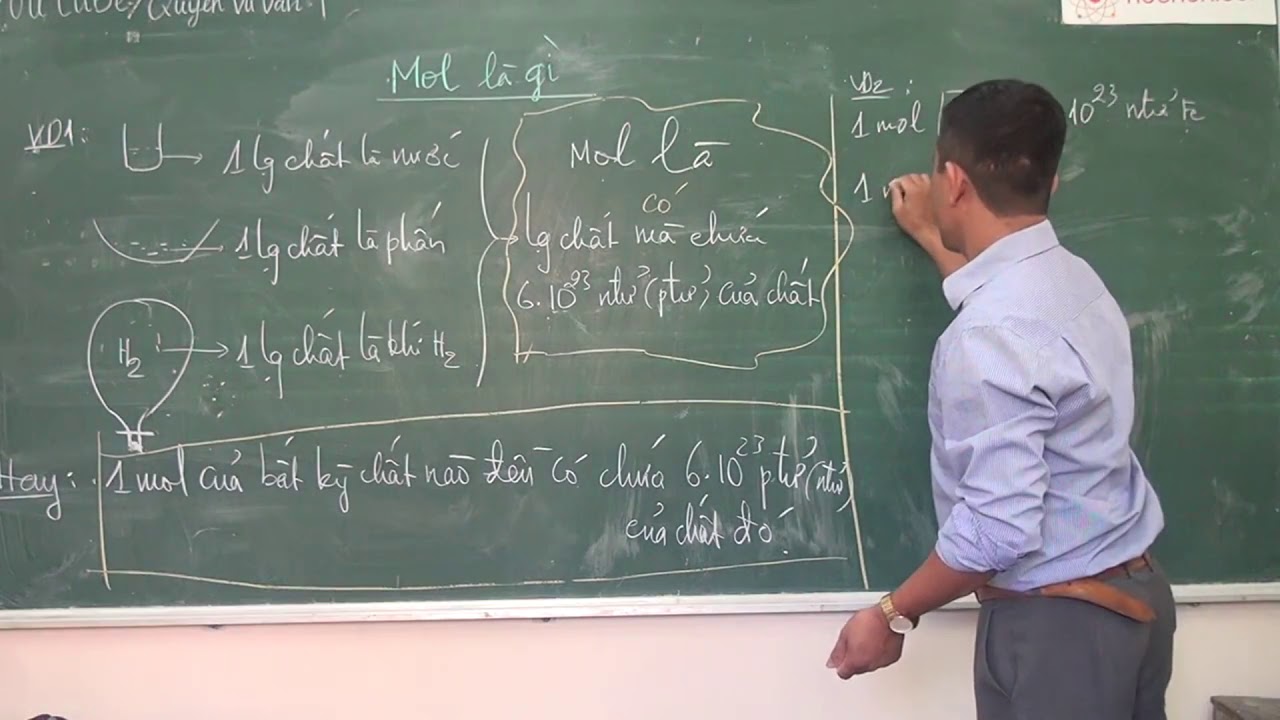 Quyền vũ văn
Mol là gì
VD1:
1 lg chất là nước
1 lg chất là phấn
H2
1 lg chất là khí H2
Mol là
có
lg chất mà chứa
6.10²³ ntử (ptử) của chất
Hay: 1 mol của bất kỳ chất nào đều có chứa 6.10²³ ptử (ntử)
của chất đó
VD2:
1 mol 10²³ ntử Fe
1